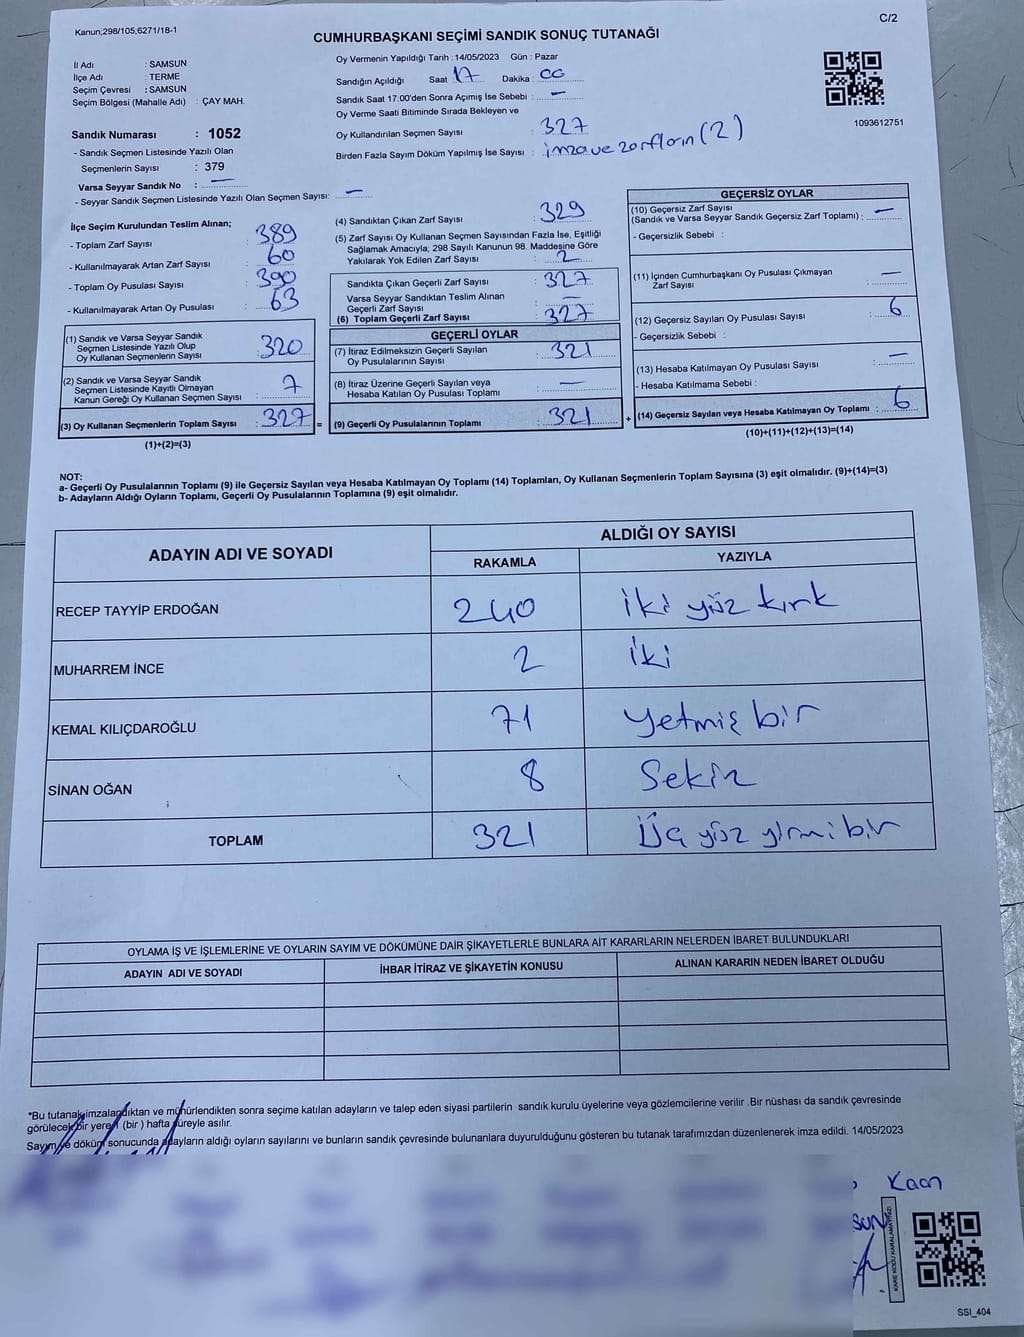 Kanun;298/105;6271/18-1
C/2
CUMHURBAŞKANI SEÇİMİ SANDIK SONUÇ TUTANAĞI
İl Adı : SAMSUN
İlçe Adı : TERME
Seçim Çevresi : SAMSUN
Seçim Bölgesi (Mahalle Adı) : ÇAY MAH.
Sandık Numarası : 1052
- Sandık Seçmen Listesinde Yazılı Olan
Seçmenlerin Sayısı : 379
Varsa Seyyar Sandık No : —
- Seyyar Sandık Seçmen Listesinde Yazılı Olan Seçmen Sayısı: —
Oy Vermenin Yapıldığı Tarih :14/05/2023 Gün : Pazar
Sandığın Açıldığı Saat 17 Dakika : 00
Sandık Saat 17:00'den Sonra Açımış İse Sebebi : —
Oy Verme Saati Bitiminde Sırada Bekleyen ve
Oy Kullandırılan Seçmen Sayısı : 327
Birden Fazla Sayım Döküm Yapılmış İse Sayısı : imza ve zarfların (2)
1093612751
İlçe Seçim Kurulundan Teslim Alınan;
- Toplam Zarf Sayısı : 389
- Kullanılmayarak Artan Zarf Sayısı : 60
- Toplam Oy Pusulası Sayısı : 390
- Kullanılmayarak Artan Oy Pusulası : 63
(1) Sandık ve Varsa Seyyar Sandık
Seçmen Listesinde Yazılı Olup
Oy Kullanan Seçmenlerin Sayısı : 320
(2) Sandık ve Varsa Seyyar Sandık
Seçmen Listesinde Kayıtlı Olmayan
Kanun Gereği Oy Kullanan Seçmen Sayısı : 7
(3) Oy Kullanan Seçmenlerin Toplam Sayısı : 327 =
(1)+(2)=(3)
(4) Sandıktan Çıkan Zarf Sayısı : 329
(5) Zarf Sayısı Oy Kullanan Seçmen Sayısından Fazla İse, Eşitliği
Sağlamak Amacıyla; 298 Sayılı Kanunun 98. Maddesine Göre
Yakılarak Yok Edilen Zarf Sayısı : 2
Sandıkta Çıkan Geçerli Zarf Sayısı : 327
Varsa Seyyar Sandıktan Teslim Alınan
Geçerli Zarf Sayısı : —
(6) Toplam Geçerli Zarf Sayısı : 327
GEÇERLİ OYLAR
(7) İtiraz Edilmeksizin Geçerli Sayılan
Oy Pusulalarının Sayısı : 321
(8) İtiraz Üzerine Geçerli Sayılan veya
Hesaba Katılan Oy Pusulası Toplamı : —
(9) Geçerli Oy Pusulalarının Toplamı : 321 +
GEÇERSİZ OYLAR
(10) Geçersiz Zarf Sayısı
(Sandık ve Varsa Seyyar Sandık Geçersiz Zarf Toplamı) : —
- Geçersizlik Sebebi :
(11) İçinden Cumhurbaşkanı Oy Pusulası Çıkmayan
Zarf Sayısı : —
(12) Geçersiz Sayılan Oy Pusulası Sayısı : 6
- Geçersizlik Sebebi :
(13) Hesaba Katılmayan Oy Pusulası Sayısı : —
- Hesaba Katılmama Sebebi :
(14) Geçersiz Sayılan veya Hesaba Katılmayan Oy Toplamı : 6
(10)+(11)+(12)+(13)=(14)
NOT:
a- Geçerli Oy Pusulalarının Toplamı (9) ile Geçersiz Sayılan veya Hesaba Katılmayan Oy Toplamı (14) Toplamları, Oy Kullanan Seçmenlerin Toplam Sayısına (3) eşit olmalıdır. (9)+(14)=(3)
b- Adayların Aldığı Oyların Toplamı, Geçerli Oy Pusulalarının Toplamına (9) eşit olmalıdır.
ADAYIN ADI VE SOYADI
ALDIĞI OY SAYISI
RAKAMLA YAZIYLA
RECEP TAYYİP ERDOĞAN 240 iki yüz kırk
MUHARREM İNCE 2 iki
KEMAL KILIÇDAROĞLU 71 yetmiş bir
SİNAN OĞAN 8 Sekiz
TOPLAM 321 Üç yüz yirmi bir
OYLAMA İŞ VE İŞLEMLERİNE VE OYLARIN SAYIM VE DÖKÜMÜNE DAİR ŞİKAYETLERLE BUNLARA AİT KARARLARIN NELERDEN İBARET BULUNDUKLARI
ADAYIN ADI VE SOYADI İHBAR İTİRAZ VE ŞİKAYETİN KONUSU ALINAN KARARIN NEDEN İBARET OLDUĞU
*Bu tutanak imzalandıktan ve mühürlendikten sonra seçime katılan adayların ve talep eden siyasi partilerin sandık kurulu üyelerine veya gözlemcilerine verilir .Bir nüshası da sandık çevresinde
görülecek bir yere 1 (bir ) hafta süreyle asılır.
Sayım ve döküm sonucunda adayların aldığı oyların sayılarını ve bunların sandık çevresinde bulunanlara duyurulduğunu gösteren bu tutanak tarafımızdan düzenlenerek imza edildi. 14/05/2023
Kaan
SUN
KARE KODU KARALAMAYINIZ!
SSI_404